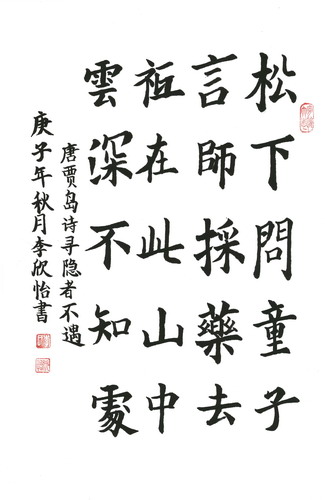 松下問童子
言師採藥去
祗在此山中
雲深不知處
唐贾岛诗寻隐者不遇
庚子年秋月李欣怡書